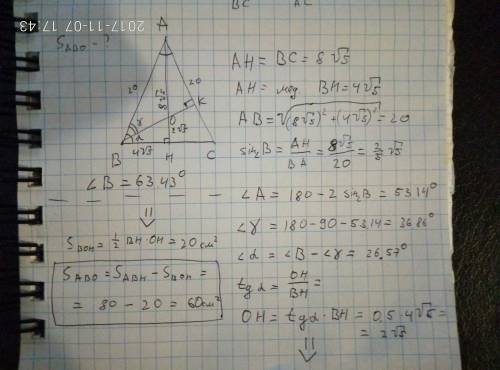 BC AC
2017-11-07 17:43
S_ABO - ?
A
20
20
8√5
K
O
2√5
γ
α
B 4√5 H C
∠B = 63,43°
S_BOH = ½ BH·OH = 20 см²
S_ABO = S_ABH - S_BOH =
= 80 - 20 = 60 см²
AH = BC = 8√5
AH = мед BH = 4√5
AB = √(8√5)² + (4√5)² = 20
sin∠B = AH/BA = 8√5/20 = 2/5 √5
∠A = 180 - 2 sin∠B = 53,14°
∠γ = 180 - 90 - 53,14 = 36,86°
∠α = ∠B - ∠γ = 26,57°
tg α = OH/BH =
OH = tg α · BH = 0,5 · 4√5 =
= 2√5